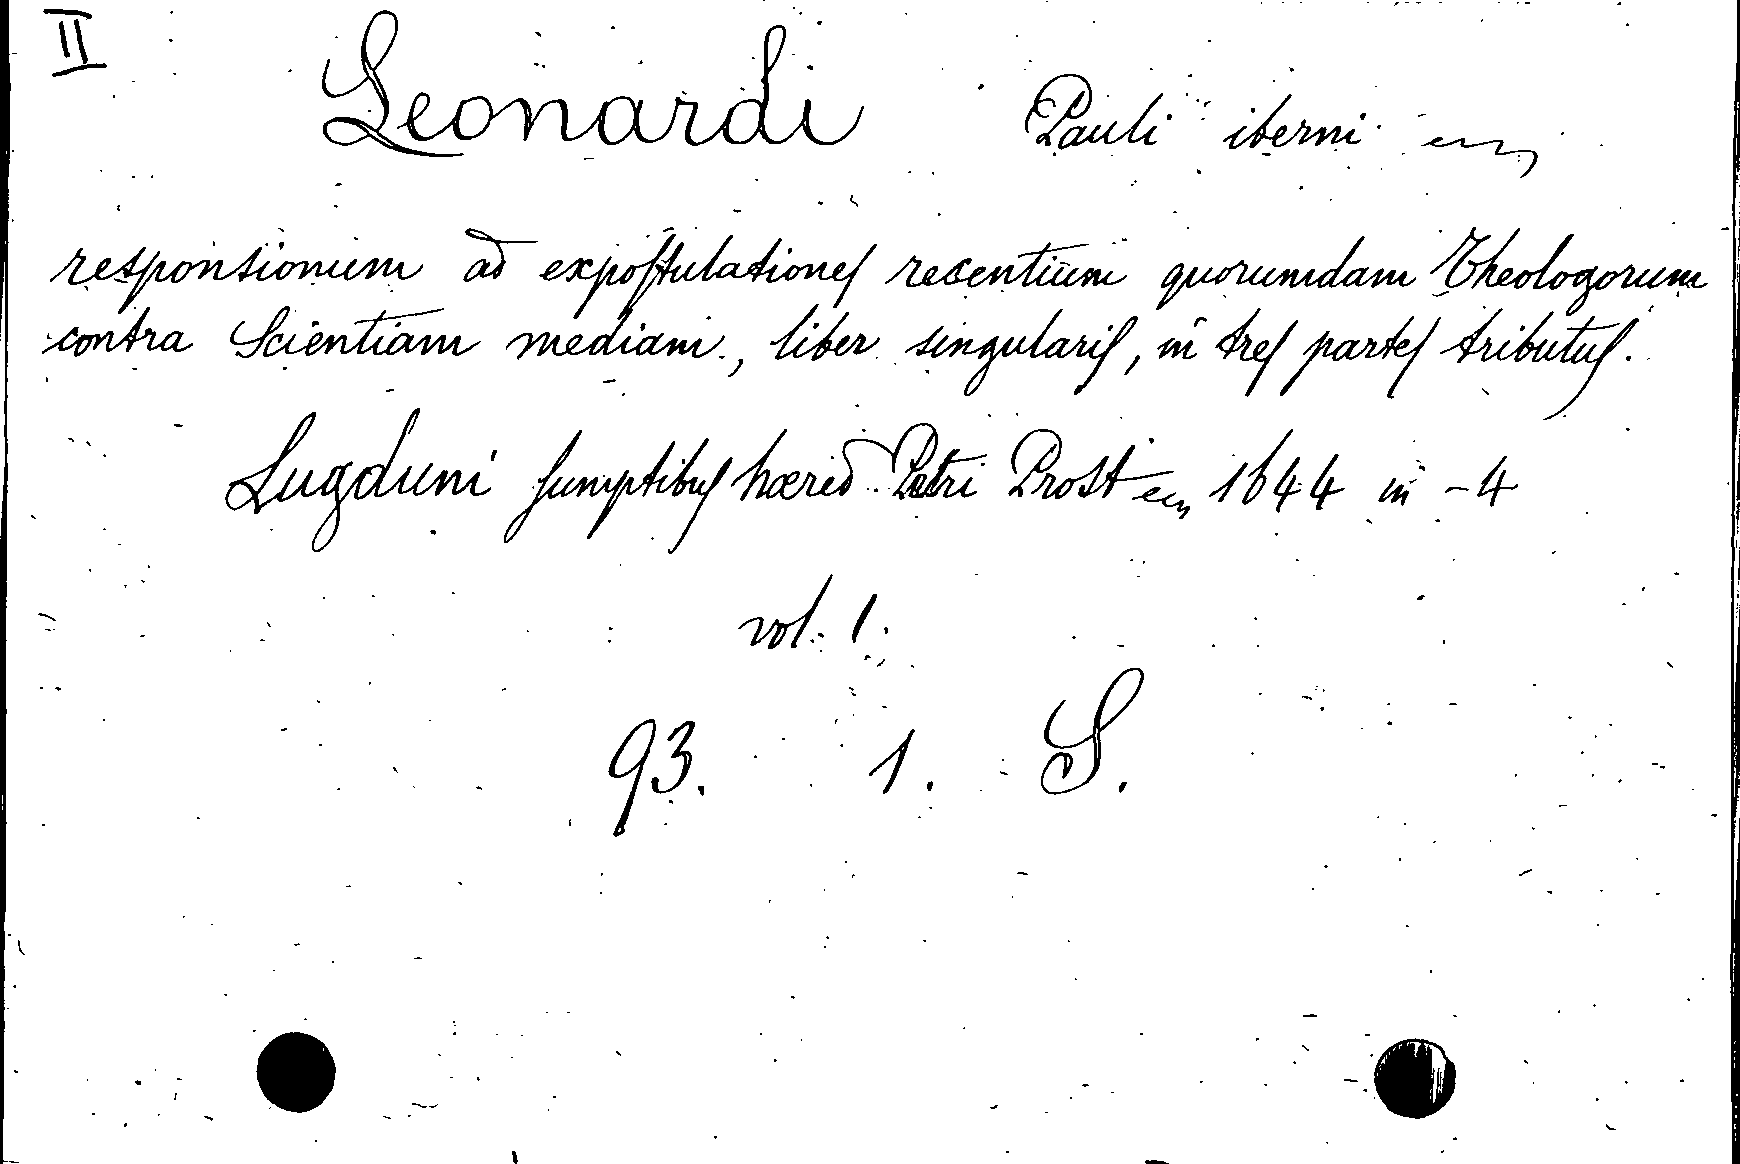 II
Leonardi Pauli iberni
responsionum ad expoſtulationes recentium quorumdam Theologorum
contra Scientiam mediam, liber singularis, in tres partes tributus.
Lugduni sumptibus hæred. Petri Prost 1644 in -4
vol. 1.
93. 1. S.